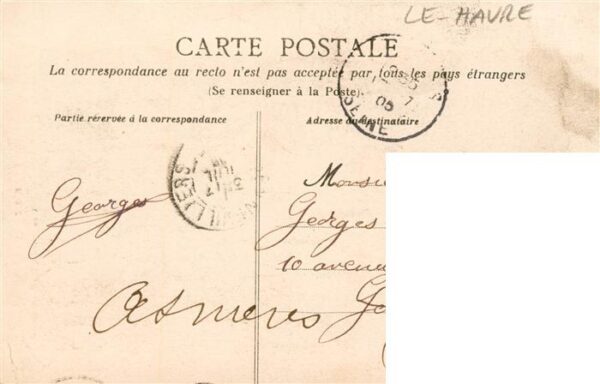 LE-HAVRE
CARTE POSTALE
La correspondance au recto n'est pas acceptée par tous les pays étrangers
(Se renseigner à la Poste).
Partie réservée à la correspondance
Adresse du destinataire
SEINE
05
Georges
Georges
10 avenue
Asnieres